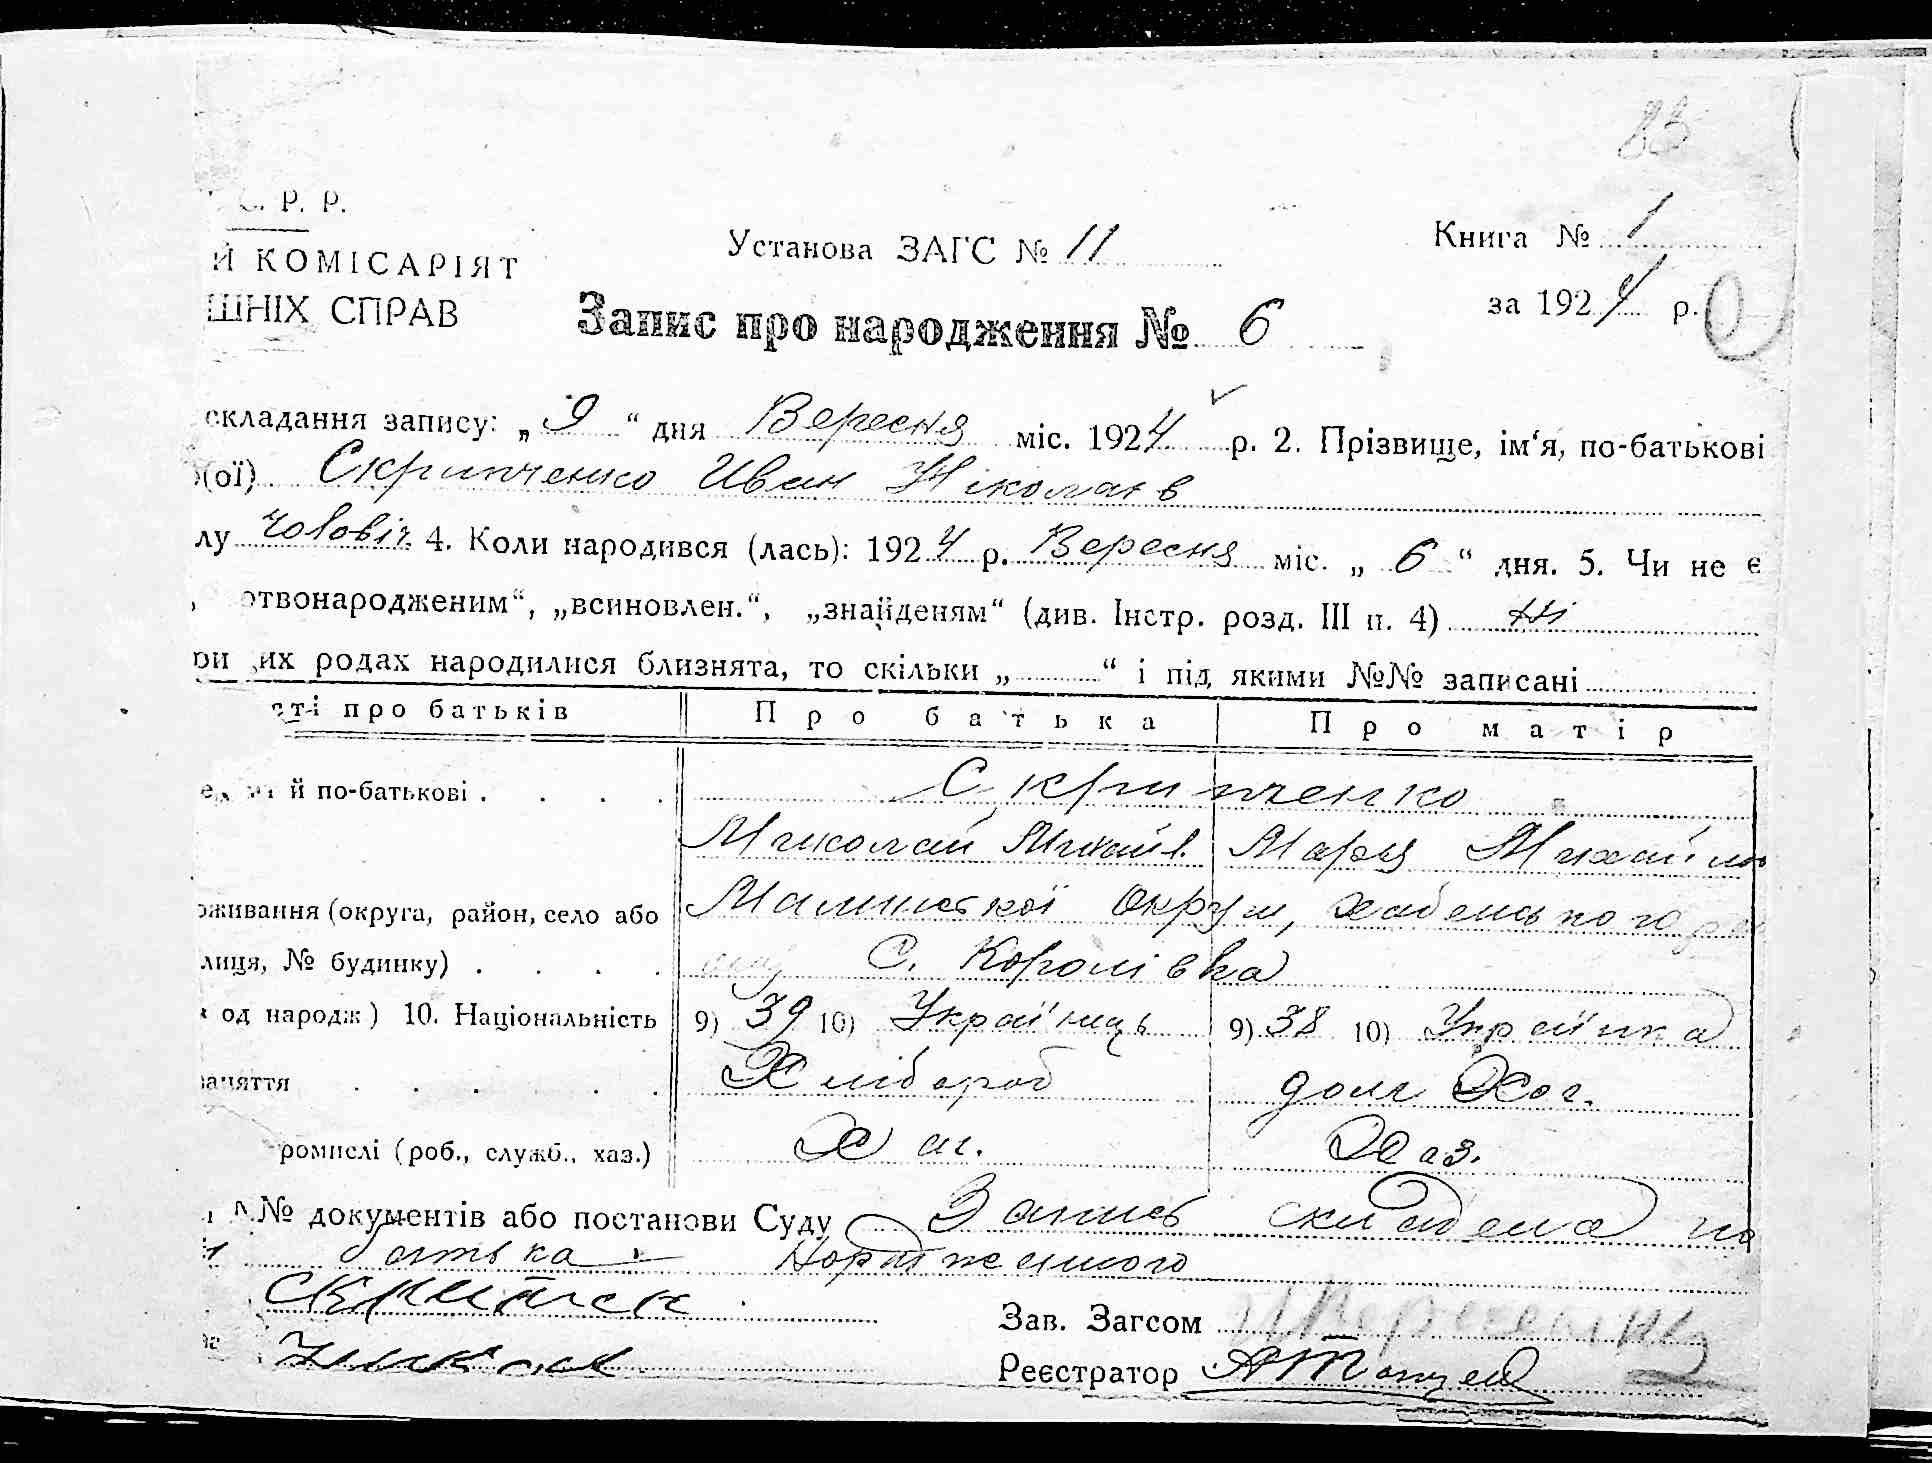 83
С. Р. Р.
Установа ЗАГС № 11
Книга № 1
Й КОМІСАРІЯТ
ШНІХ СПРАВ
за 1924 р.
Запис про народження № 6
складання запису: „ 9 “ дня Вересня міс. 1924 р. 2. Прізвище, ім‘я, по-батькові
(ої) Скрипченко Иван Ніколаев
лу чоловіч. 4. Коли народився (лась): 1924 р. Вересня міс. „ 6 “ дня. 5. Чи не є
отвонародженим“, „всиновлен.“, „знайденям“ (див. Інстр. розд. III п. 4) Ні
ри их родах народилися близнята, то скільки „ “ і під якими №№ записані
сті про батьків Про батька Про матір
й по-батькові . . . . Скрипченко
Миколай Михайл. Мария Михайло
оживання (округа, район, село або Малинської округи, Хабенського ра
лиця, № будинку) . . . . С. Королівка
од народж ) 10. Національність 9) 39 10) Українець 9) 38 10) Українка
заняття . . . . . Хлібороб дом Хоз.
ромислі (роб., служб., хаз.) Хаз. Хаз.
№ документів або постанови Суду Запись складена по
батька
Зав. Загсом
Реєстратор